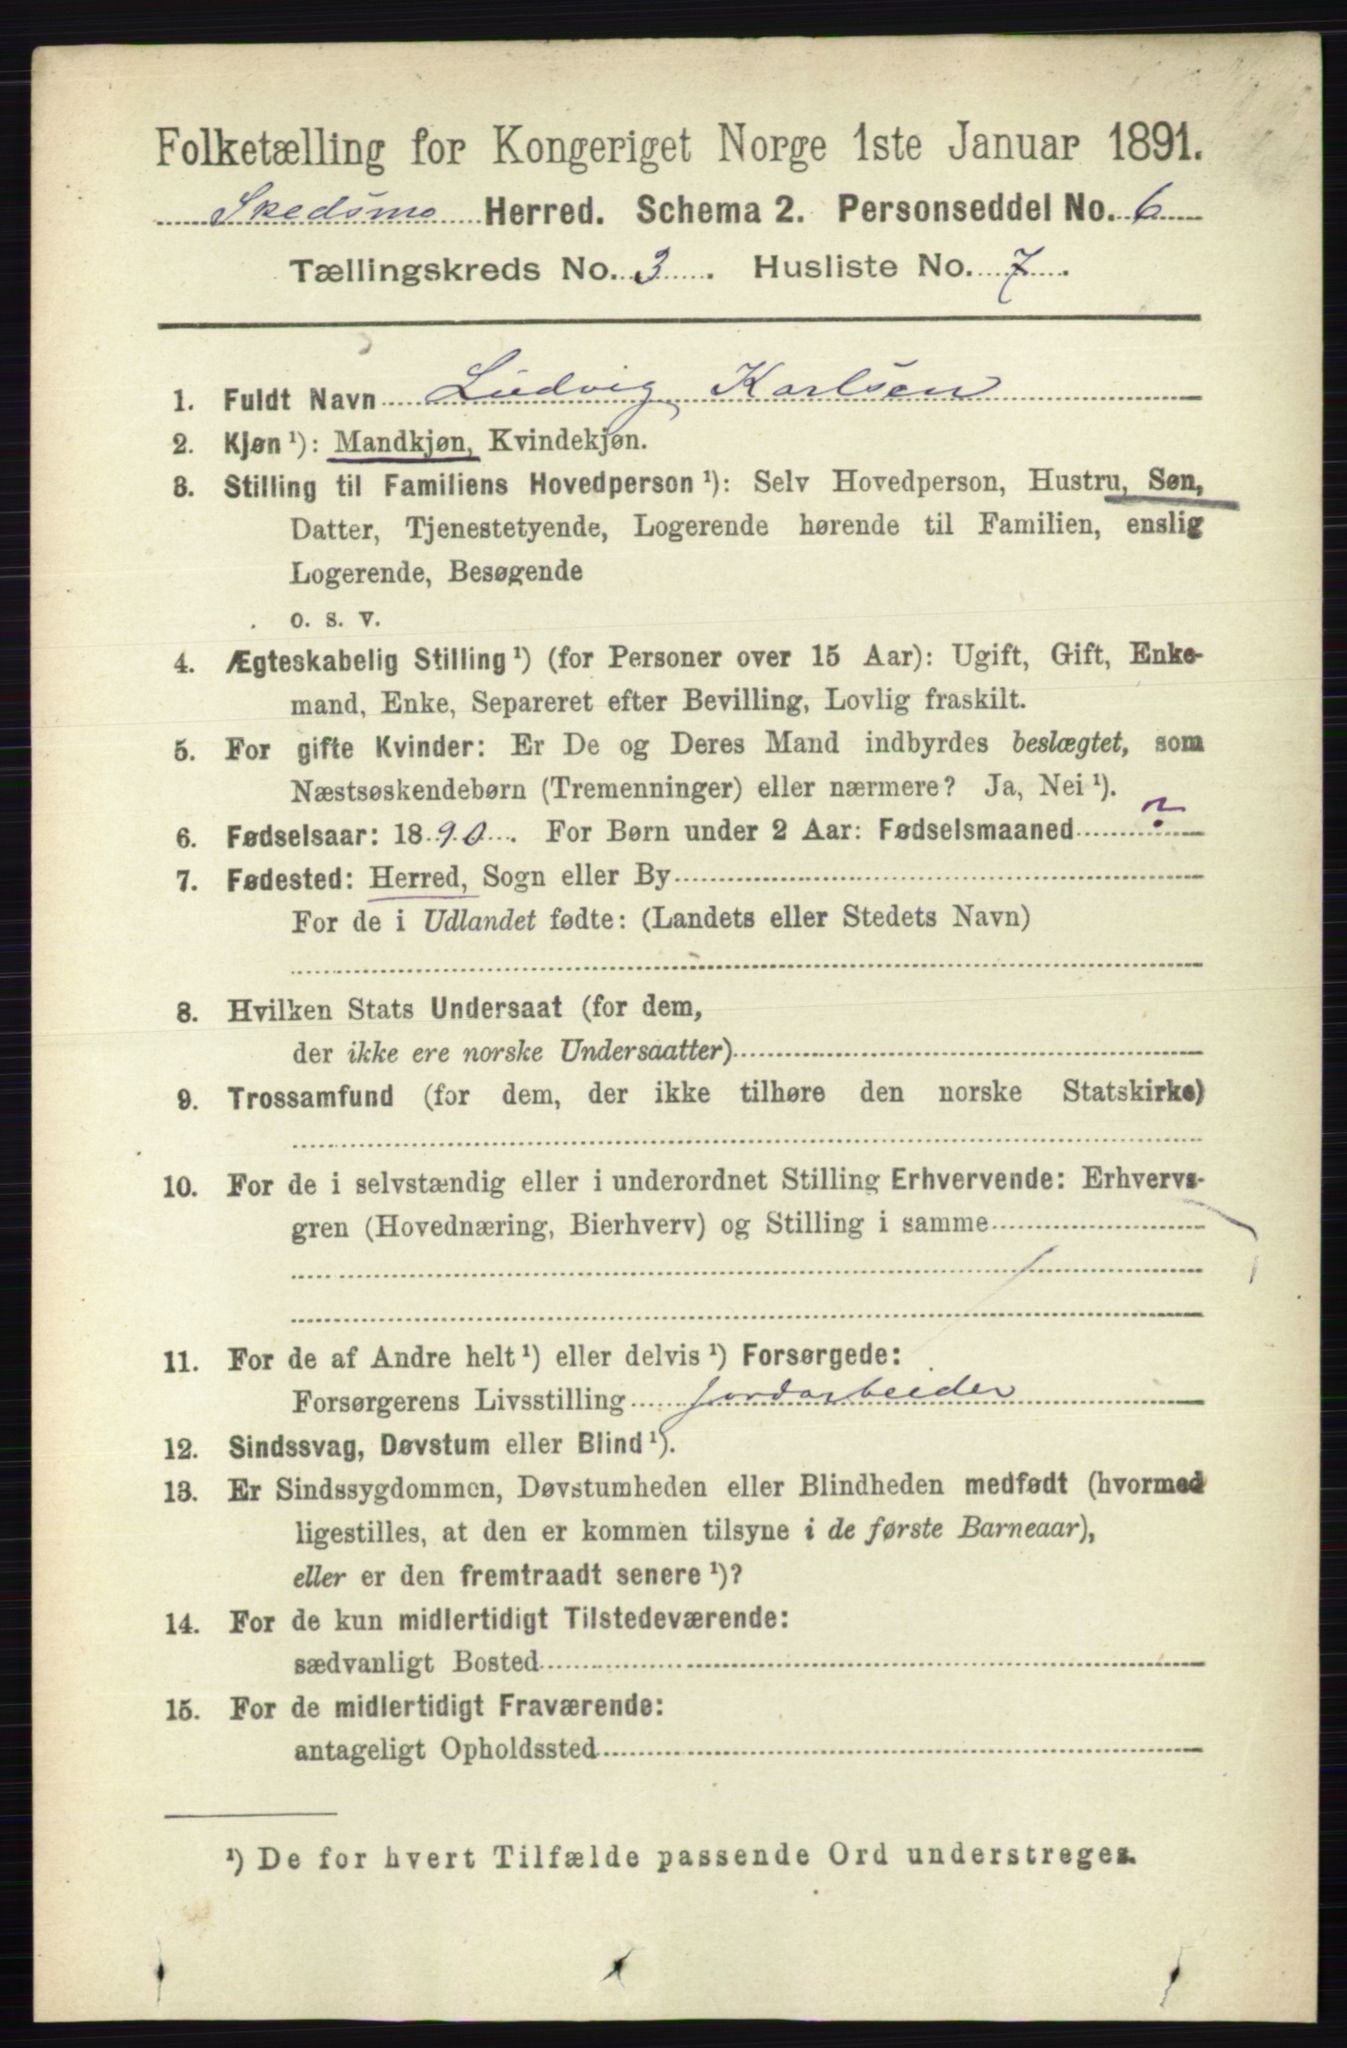 Folketælling for Kongeriget Norge 1ste Januar 1891.
Skedsmo Herred. Schema 2. Personseddel No. 6
Tællingskreds No. 3. Husliste No. 7.
1. Fuldt Navn Ludvig Karlsen
2. Kjøn ¹): Mandkjøn, Kvindekjøn.
3. Stilling til Familiens Hovedperson ¹): Selv Hovedperson, Hustru, Søn,
Datter, Tjenestetyende, Logerende hørende til Familien, enslig
Logerende, Besøgende
o. s. v.
4. Ægteskabelig Stilling ¹) (for Personer over 15 Aar): Ugift, Gift, Enke-
mand, Enke, Separeret efter Bevilling, Lovlig fraskilt.
5. For gifte Kvinder: Er De og Deres Mand indbyrdes beslægtet, som
Næstsøskendebørn (Tremenninger) eller nærmere? Ja, Nei ¹).
6. Fødselsaar: 1890. For Børn under 2 Aar: Fødselsmaaned ?
7. Fødested: Herred, Sogn eller By
For de i Udlandet fødte: (Landets eller Stedets Navn)
8. Hvilken Stats Undersaat (for dem,
der ikke ere norske Undersaatter)
9. Trossamfund (for dem, der ikke tilhøre den norske Statskirke)
10. For de i selvstændig eller i underordnet Stilling Erhvervende: Erhvervs-
gren (Hovednæring, Bierhverv) og Stilling i samme
11. For de af Andre helt ¹) eller delvis ¹) Forsørgede:
Forsørgerens Livsstilling Jordarbeider
12. Sindssvag, Døvstum eller Blind ¹).
13. Er Sindssygdommen, Døvstumheden eller Blindheden medfødt (hvormed
ligestilles, at den er kommen tilsyne i de første Barneaar),
eller er den fremtraadt senere ¹)?
14. For de kun midlertidigt Tilstedeværende:
sædvanligt Bosted
15. For de midlertidigt Fraværende:
antageligt Opholdssted
¹) De for hvert Tilfælde passende Ord understreges.